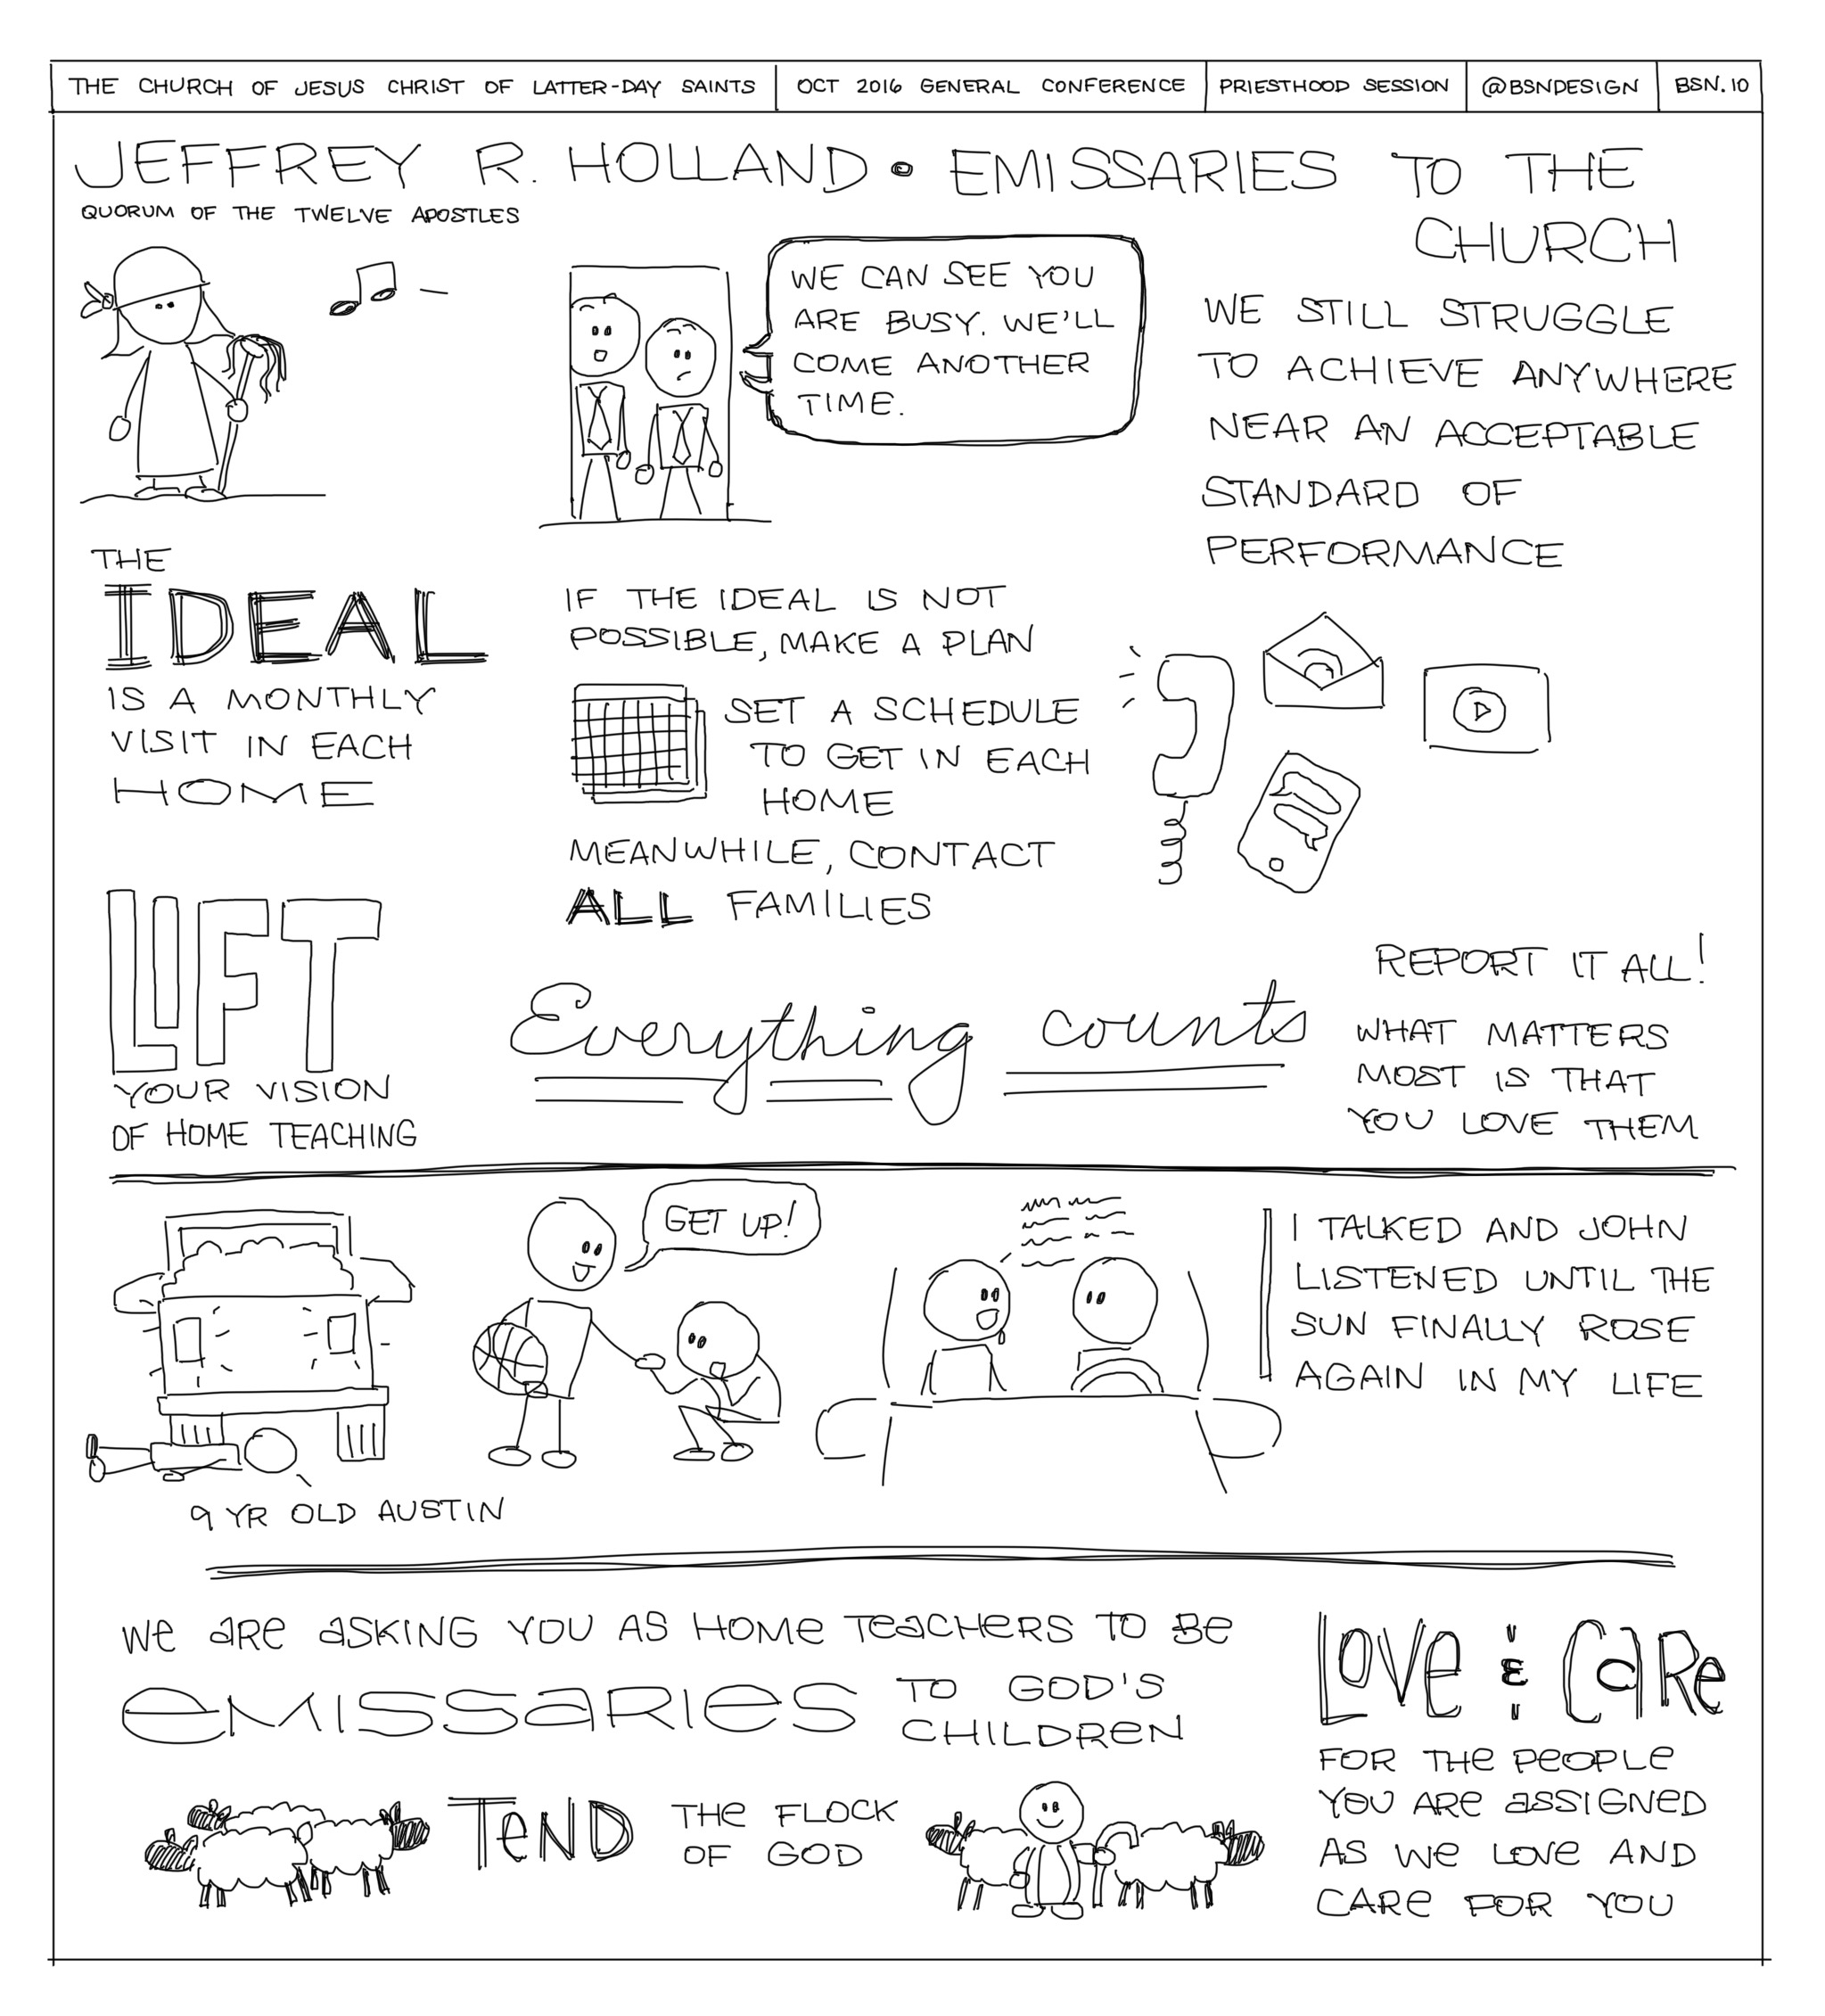 THE CHURCH OF JESUS CHRIST OF LATTER-DAY SAINTS
OCT 2016 GENERAL CONFERENCE
PRIESTHOOD SESSION
@BSNDESIGN
BSN.10
JEFFREY R. HOLLAND • EMISSARIES TO THE
CHURCH
QUORUM OF THE TWELVE APOSTLES
WE CAN SEE YOU
ARE BUSY. WE'LL
COME ANOTHER
TIME.
WE STILL STRUGGLE
TO ACHIEVE ANYWHERE
NEAR AN ACCEPTABLE
STANDARD OF
PERFORMANCE
THE
IDEAL
IS A MONTHLY
VISIT IN EACH
HOME
IF THE IDEAL IS NOT
POSSIBLE, MAKE A PLAN
SET A SCHEDULE
TO GET IN EACH
HOME
MEANWHILE, CONTACT
ALL FAMILIES
LIFT
YOUR VISION
OF HOME TEACHING
Everything counts
REPORT IT ALL!
WHAT MATTERS
MOST IS THAT
YOU LOVE THEM
GET UP!
9 YR OLD AUSTIN
I TALKED AND JOHN
LISTENED UNTIL THE
SUN FINALLY ROSE
AGAIN IN MY LIFE
We aRe asKING YOU AS HOMe TeaCHeRS TO Be
eMISSaRIeS TO GOD'S
CHILDReN
TeND THe FLOCK
OF GOD
LOVe & CaRe
FOR THe PeOPLe
YOU ARe aSSIGNeD
AS We LOVe AND
CARe FOR YOU